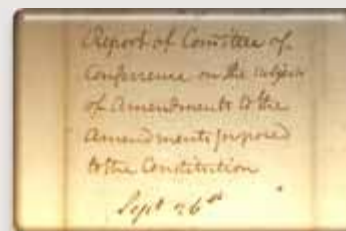 Report of Comittee of
Conference on the subject
of Amendments to the
Amendments proposed
to the Constitution
Sept 26th